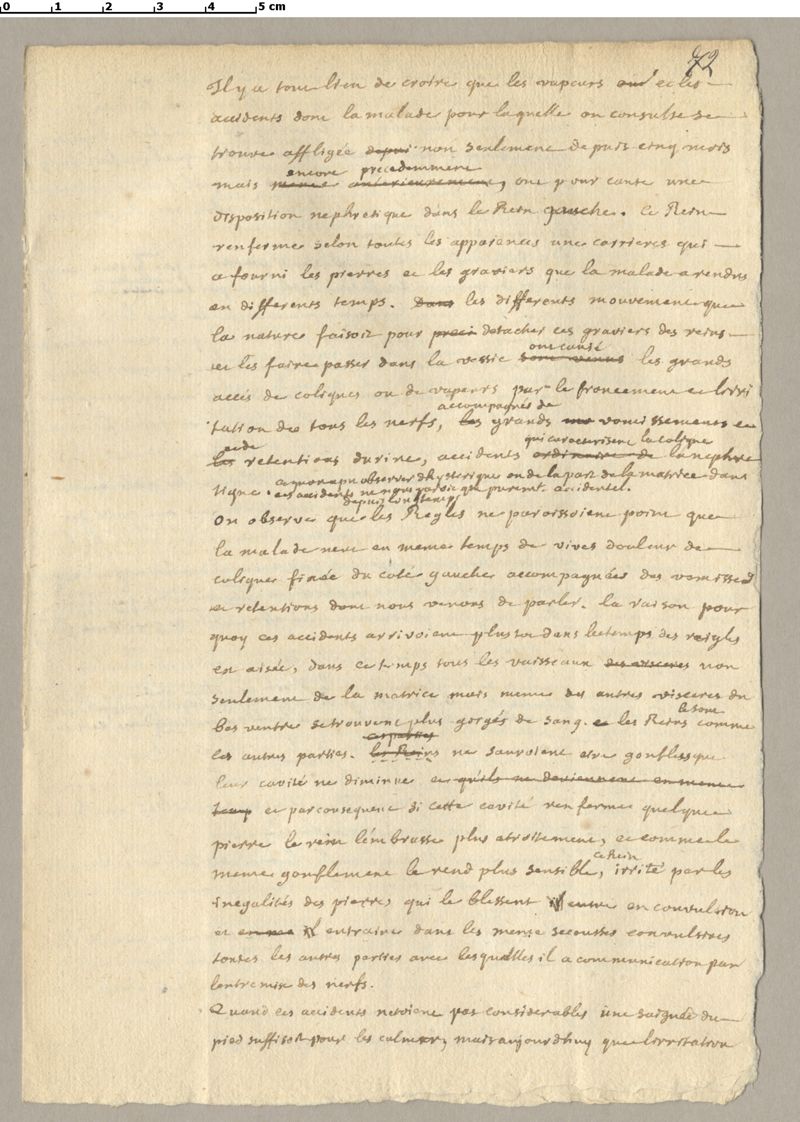 0 1 2 3 4 5 cm
72
Il y a tout lieu de croire que les vapeurs et les
accidents dont la malade pour laquelle on consulte se
trouve affligée depui non seulement depuis cinq mois
encore precedemment
mais meme anterieurement, ont pour cause une
disposition nephretique dans le Rein gauche. Ce Rein
renferme selon toutes les apparences une carriere qui
a fourni les pierres et les graviers que la malade a rendus
en differents temps. Dans les differents mouvement que
la nature faisoit pour detacher ces graviers des reins
ont causé
et les faire passer dans la vessie sont venus les grands
accés de coliques ou de vapeurs par le froncement et l'irri
accompagnés de
tation de tous les nerfs, les grands vomissements et
et de qui caracterisent la colique
les retentions d'urine, accidents ordinaire de la nephre
a quon a pu observer d'hysterique ou de la part de la matrice dans
tique. ces accidents ne nous paroit que purement accidentel.
depuis longtemps
On observe que les Regles ne paroissoient point que
la malade neut en meme temps de vives douleur de
colique fixée du coté gauche accompagnées des vomissem
et retentions dont nous venons de parler. la raison pour
quoy ces accidents arrivoient plustot dans le temps des reigles
est aisée, dans ce temps tous les vaisseaux des visceres non
seulement de la matrice mais meme des autres visceres du
bas ventre se trouvent plus gorgés de sang. et les Reins comme
le sont
les autres parties. les Reins ne sauroient etre gonfles que
ces parties
leur cavité ne diminue et qu'ils ne deviennent en meme
temp et par consequent si cette cavité renferme quelque
pierre le rein l'embrasse plus etroitement, et comme le
meme gonflement le rend plus sensible, irrité par les
ce Rein
inegalités des pierres qui le blessent entre en convulsion
et entraine dans les meme secousses convulsives
toutes les autres parties avec lesquelles il a communication par
lentremise des nerfs.
Quand ces accidents netoient pas considerables une saignée du
pied suffisoit pour les calmer, mais aujourdhuy que l'irritation